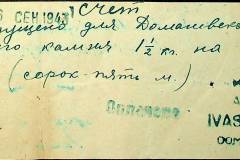 СЕН 1943 Счет
пущено для Домачевско
го камня 1½ кг. на
(сорок пять м.)
Оплачено
IVAS
DOM